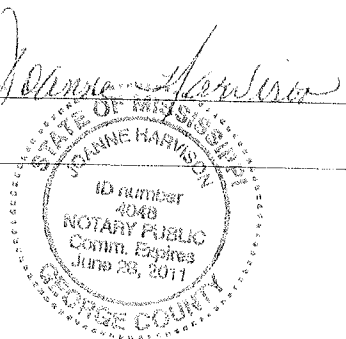 Joanne Harvison
STATE OF MISSISSIPPI
JOANNE HARVISON
ID number
4048
NOTARY PUBLIC
Comm. Expires
June 28, 2011
GEORGE COUNTY